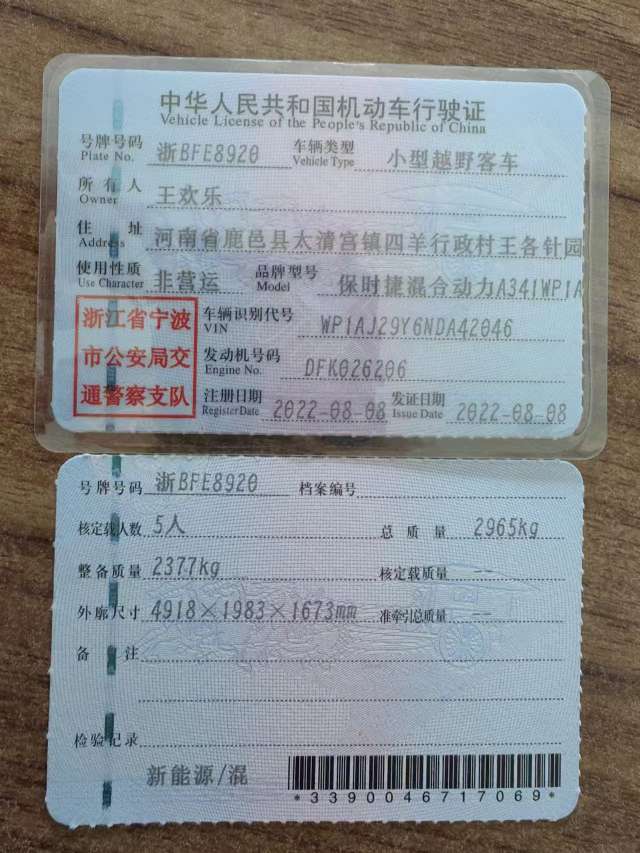 中华人民共和国机动车行驶证
Vehicle License of the People's Republic of China
号牌号码 浙BFE8920 车辆类型 小型越野客车
Plate No. Vehicle Type
所有人 王欢乐
Owner
住址 河南省鹿邑县太清宫镇四羊行政村王各针园
Address
使用性质 非营运 品牌型号 保时捷混合动力A341WP1A
Use Character Model
浙江省宁波
市公安局交
通警察支队
车辆识别代号 WP1AJ29Y6NDA42046
VIN
发动机号码 DFK026206
Engine No.
注册日期 2022-08-08 发证日期 2022-08-08
Register Date Issue Date
号牌号码 浙BFE8920 档案编号
核定载人数 5人 总质量 2965kg
整备质量 2377kg 核定载质量 --
外廓尺寸 4918×1983×1673mm 准牵引总质量 --
备注
检验记录
新能源/混
*3390046717069*